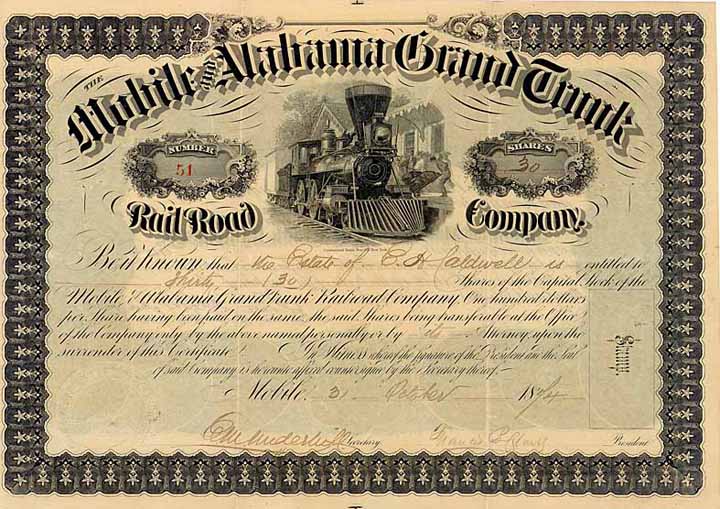 THE
Mobile and Alabama Grand Trunk
NUMBER
51
SHARES
30
Rail Road Company.
Be it Known that the Estate of C. H. Caldwell is entitled to
Thirty (30) Shares of the Capital Stock of the
Mobile & Alabama Grand Trunk Railroad Company, One hundred dollars
per Share having been paid on the same, the said Shares being transferable at the Office
of the Company only by the above named personally or by its Attorney upon the
surrender of this Certificate. In Witness whereof the signature of the President and the Seal
of said Company is hereunto affixed countersigned by the Secretary thereof.
Mobile, 31 October 1874
C M Underhill Secretary. Francis B President